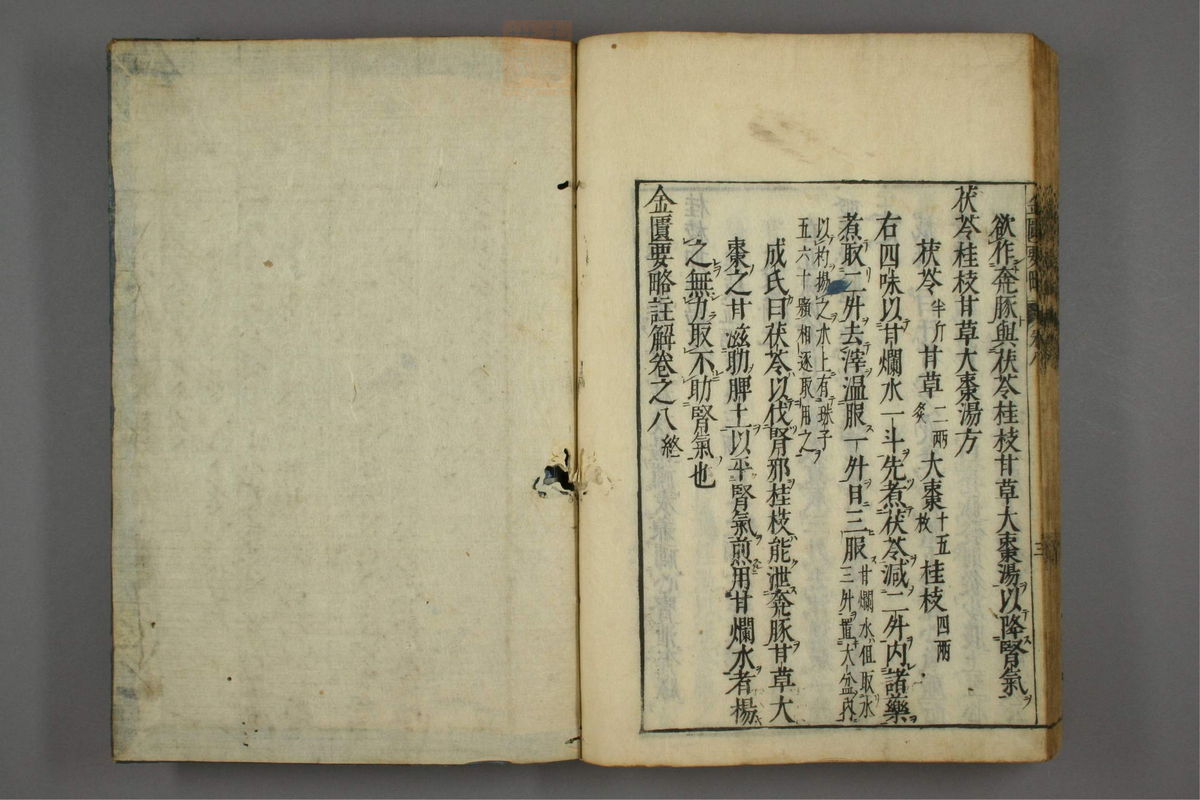 欲作奔豚與茯苓桂枝甘草大棗湯以降腎氣
茯苓桂枝甘草大棗湯方
茯苓半斤甘草二兩炙大棗十五枚桂枝四兩
右四味以甘爛水一斗先煮茯苓減二升内諸藥
煮取三升去滓温服一升日三服甘爛水法取水三升置大盆内
以杓揚之水上有珠子五六十顆相逐取用之
成氏曰茯苓以伐腎邪桂枝能泄奔豚甘草大
棗之甘滋助脾土以平腎氣煎用甘爛水者楊
之無力取不助腎氣也
金匱要略註解卷之八終